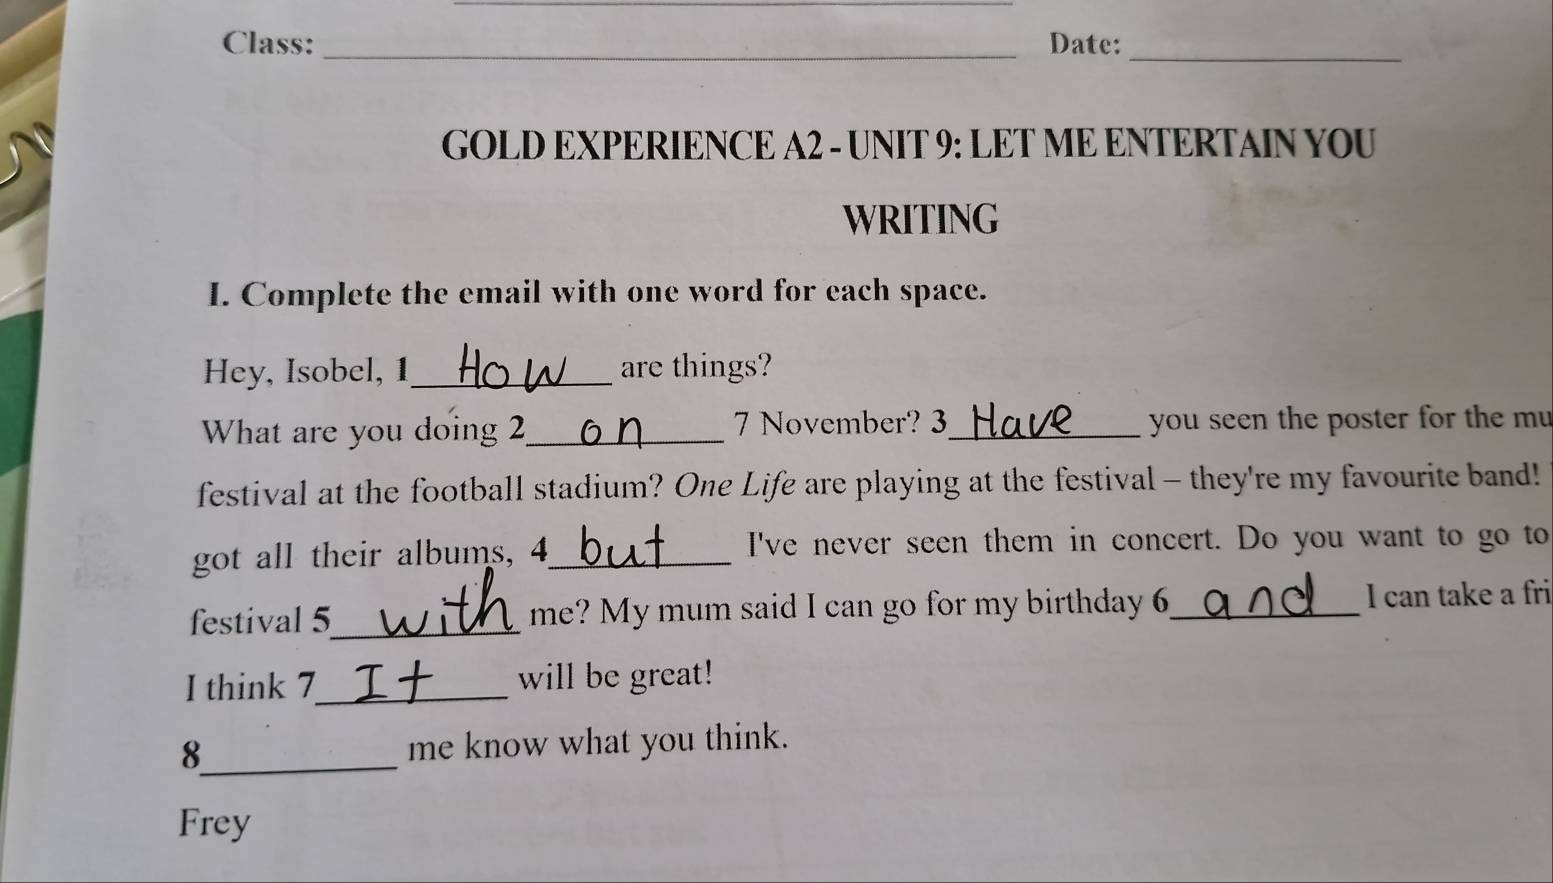 Class: ____________ Date: ____________
GOLD EXPERIENCE A2 - UNIT 9: LET ME ENTERTAIN YOU
WRITING
I. Complete the email with one word for each space.
Hey, Isobel, 1 How are things?
What are you doing 2 on 7 November? 3 Have you seen the poster for the mu
festival at the football stadium? One Life are playing at the festival – they're my favourite band!
got all their albums, 4 but I've never seen them in concert. Do you want to go to
festival 5 with me? My mum said I can go for my birthday 6 and I can take a fri
I think 7 It will be great!
8____________ me know what you think.
Frey